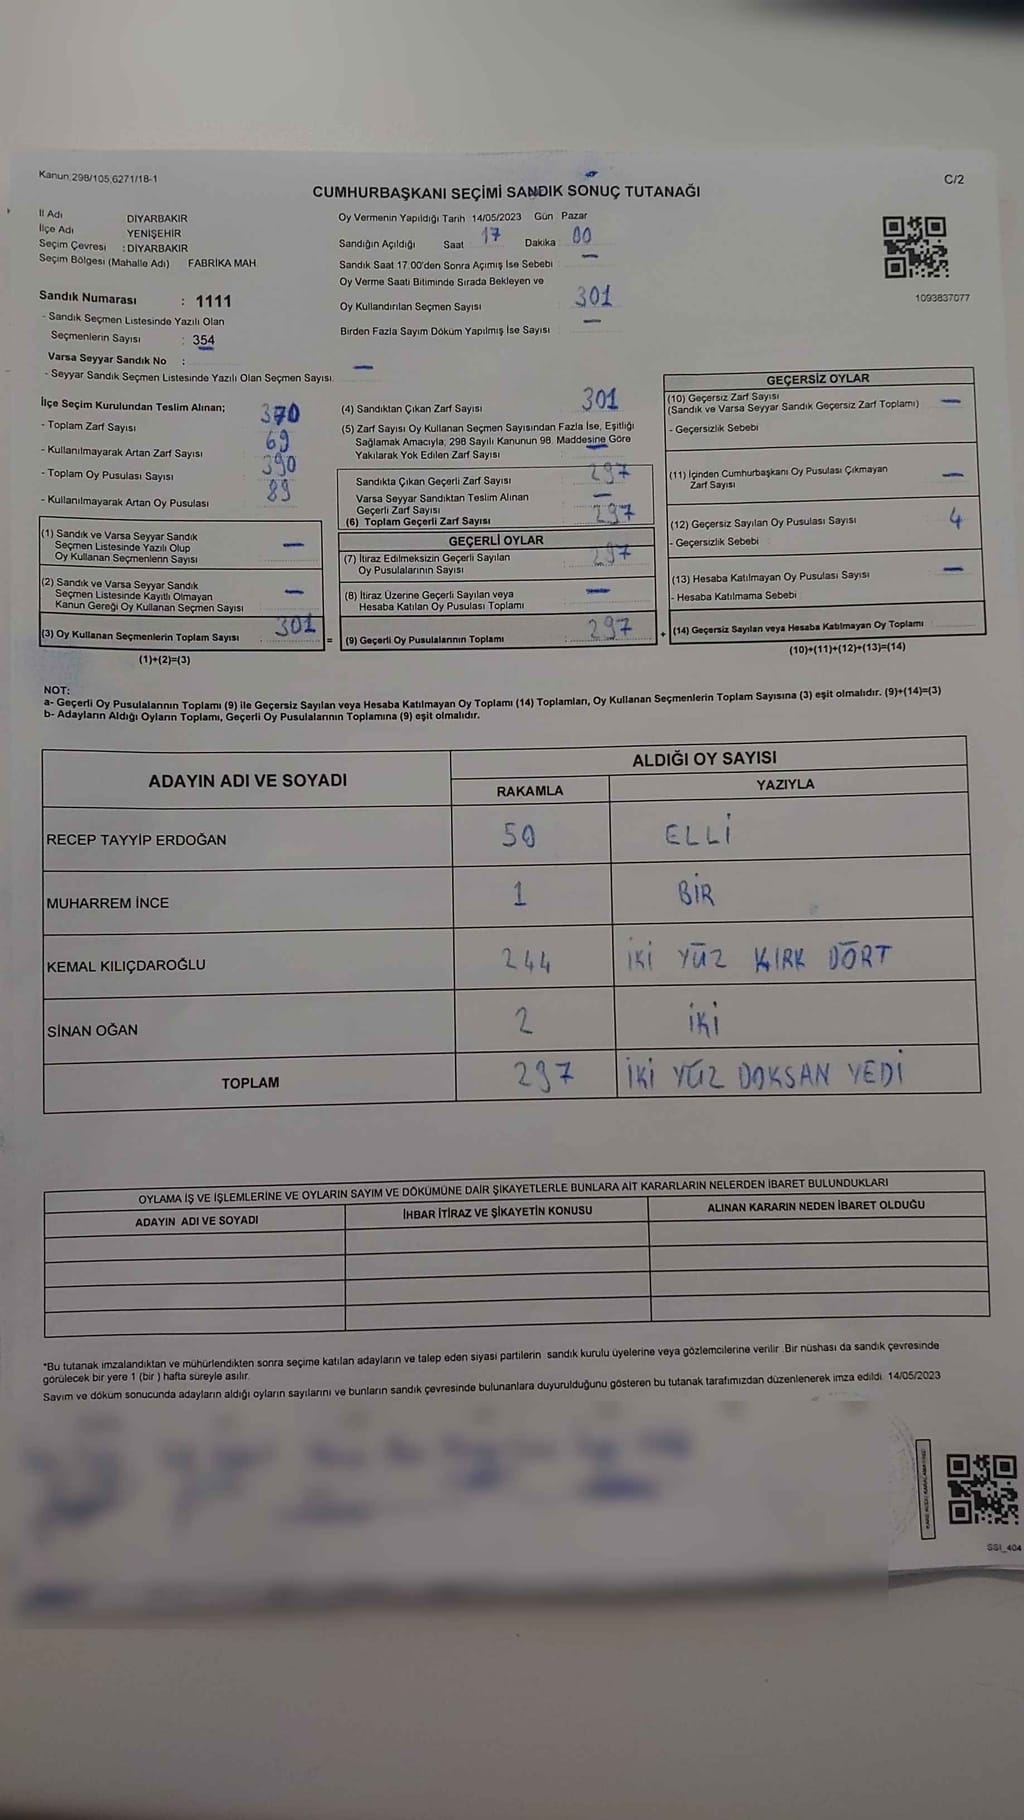 Kanun,298/105,6271/18-1
C/2
CUMHURBAŞKANI SEÇİMİ SANDIK SONUÇ TUTANAĞI
İl Adı DİYARBAKIR
İlçe Adı YENİŞEHİR
Seçim Çevresi : DİYARBAKIR
Seçim Bölgesi (Mahalle Adı) FABRİKA MAH.
Sandık Numarası : 1111
- Sandık Seçmen Listesinde Yazılı Olan
Seçmenlerin Sayısı : 354
Varsa Seyyar Sandık No : —
- Seyyar Sandık Seçmen Listesinde Yazılı Olan Seçmen Sayısı.
Oy Vermenin Yapıldığı Tarih 14/05/2023 Gün Pazar
Sandığın Açıldığı Saat 17 Dakika 00
Sandık Saat 17:00'den Sonra Açımış İse Sebebi —
Oy Verme Saati Bitiminde Sırada Bekleyen ve
Oy Kullandırılan Seçmen Sayısı 301
Birden Fazla Sayım Döküm Yapılmış İse Sayısı —
1093837077
İlçe Seçim Kurulundan Teslim Alınan;
- Toplam Zarf Sayısı 370
- Kullanılmayarak Artan Zarf Sayısı 69
- Toplam Oy Pusulası Sayısı 390
- Kullanılmayarak Artan Oy Pusulası 89
(1) Sandık ve Varsa Seyyar Sandık
Seçmen Listesinde Yazılı Olup
Oy Kullanan Seçmenlerın Sayısı —
(2) Sandık ve Varsa Seyyar Sandık
Seçmen Listesinde Kayıtlı Olmayan
Kanun Gereği Oy Kullanan Seçmen Sayısı —
(3) Oy Kullanan Seçmenlerin Toplam Sayısı 301
(1)+(2)=(3)
(4) Sandıktan Çıkan Zarf Sayısı 301
(5) Zarf Sayısı Oy Kullanan Seçmen Sayısından Fazla İse, Eşitliği
Sağlamak Amacıyla, 298 Sayılı Kanunun 98. Maddesine Göre
Yakılarak Yok Edilen Zarf Sayısı —
Sandıkta Çıkan Geçerli Zarf Sayısı 297
Varsa Seyyar Sandıktan Teslim Alınan
Geçerli Zarf Sayısı —
(6) Toplam Geçerli Zarf Sayısı 297
GEÇERLİ OYLAR
(7) İtiraz Edilmeksizin Geçerli Sayılan
Oy Pusulalarının Sayısı 297
(8) İtiraz Üzerine Geçerli Sayılan veya
Hesaba Katılan Oy Pusulası Toplamı —
= (9) Geçerli Oy Pusulalarının Toplamı : 297
GEÇERSİZ OYLAR
(10) Geçersiz Zarf Sayısı
(Sandık ve Varsa Seyyar Sandık Geçersiz Zarf Toplamı) —
- Geçersizlik Sebebi
(11) İçinden Cumhurbaşkanı Oy Pusulası Çıkmayan
Zarf Sayısı —
(12) Geçersiz Sayılan Oy Pusulası Sayısı 4
- Geçersizlik Sebebi
(13) Hesaba Katılmayan Oy Pusulası Sayısı —
- Hesaba Katılmama Sebebi
+ (14) Geçersiz Sayılan veya Hesaba Katılmayan Oy Toplamı
(10)+(11)+(12)+(13)=(14)
NOT:
a- Geçerli Oy Pusulalarının Toplamı (9) ile Geçersiz Sayılan veya Hesaba Katılmayan Oy Toplamı (14) Toplamları, Oy Kullanan Seçmenlerin Toplam Sayısına (3) eşit olmalıdır. (9)+(14)=(3)
b- Adayların Aldığı Oyların Toplamı, Geçerli Oy Pusulalarının Toplamına (9) eşit olmalıdır.
ADAYIN ADI VE SOYADI
ALDIĞI OY SAYISI
RAKAMLA YAZIYLA
RECEP TAYYİP ERDOĞAN 50 ELLİ
MUHARREM İNCE 1 BİR
KEMAL KILIÇDAROĞLU 244 İKİ YÜZ KIRK DÖRT
SİNAN OĞAN 2 İKİ
TOPLAM 297 İKİ YÜZ DOKSAN YEDİ
OYLAMA İŞ VE İŞLEMLERİNE VE OYLARIN SAYIM VE DÖKÜMÜNE DAİR ŞİKAYETLERLE BUNLARA AİT KARARLARIN NELERDEN İBARET BULUNDUKLARI
ADAYIN ADI VE SOYADI İHBAR İTİRAZ VE ŞİKAYETİN KONUSU ALINAN KARARIN NEDEN İBARET OLDUĞU
*Bu tutanak imzalandıktan ve mühürlendikten sonra seçime katılan adayların ve talep eden siyasi partilerin sandık kurulu üyelerine veya gözlemcilerine verilir. Bir nüshası da sandık çevresinde
görülecek bir yere 1 (bir ) hafta süreyle asılır.
Sayım ve döküm sonucunda adayların aldığı oyların sayılarını ve bunların sandık çevresinde bulunanlara duyurulduğunu gösteren bu tutanak tarafımızdan düzenlenerek imza edildi. 14/05/2023
SSI_404